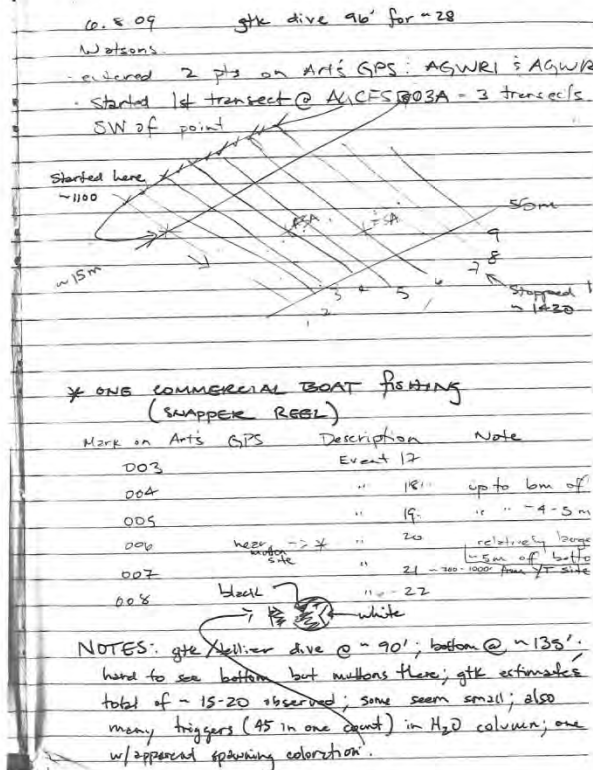 6.8.09 gtk dive 96' for ~28
Watsons.
- entered 2 pts on Art's GPS: AGWR1 & AGWR
· Started 1st transect @ AGCFSB03A - 3 transects
SW of point
Started here
~1100
~15m
FSA
50m
1 2 3 4 5 6 7 8 9
Stopped
~1430
* ONE COMMERCIAL BOAT fishing
(SNAPPER REEL)
Mark on Art's GPS Description Note
003 Event 17
004 " 18 up to 6m of
005 " 19 " " ~4-5m
006 near mutton site -> * " 20 relatively large ~5m off botto
007 " 21 ~700-1000' from YT site
008 " - 22
black
white
NOTES: gtk / dive @ ~90'; bottom @ ~135'.
hard to see bottom but muttons there; gtk estimates
total of ~15-20 observed; some seem small; also
many triggers (45 in one count) in H2O column; one
w/apparent spawning coloration.